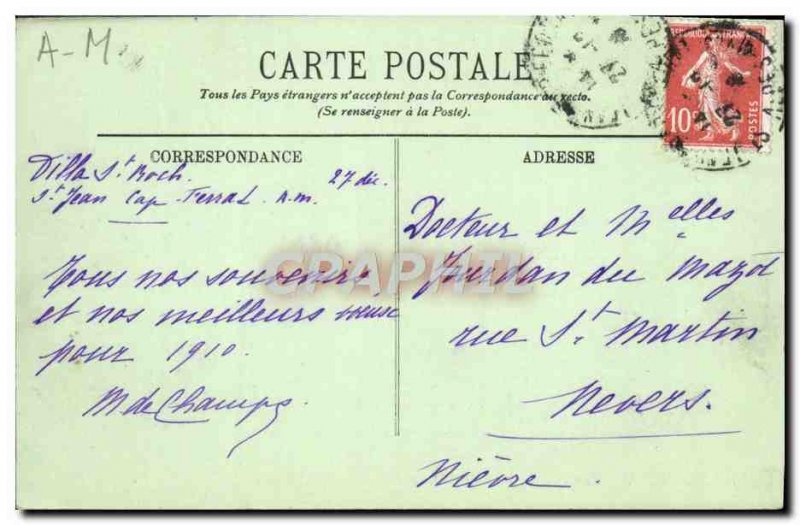 A-M
CARTE POSTALE
Tous les Pays étrangers n'acceptent pas la Correspondance au recto.
(Se renseigner à la Poste).
CORRESPONDANCE
Villa St Roch. 27 déc.
St Jean Cap Ferrat. A.M.
Tous nos souvenirs,
et nos meilleurs voeux
pour 1910.
M de Champs.
ADRESSE
Docteur et Melles
Jourdan du Mazot
rue St Martin
Nevers.
Nièvre.
10
CPAPHIL